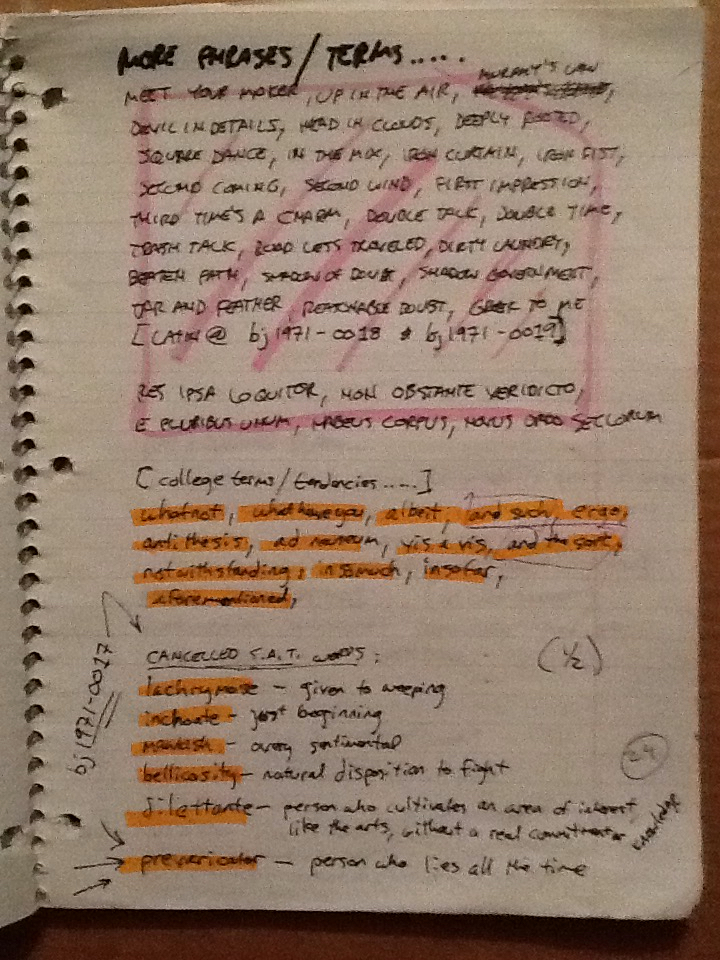 MORE PHRASES/TERMS.....
MURPHY'S LAW
MEET YOUR MAKER, UP IN THE AIR,
DEVIL IN DETAILS, HEAD IN CLOUDS, DEEPLY ROOTED,
SQUARE DANCE, IN THE MIX, IRON CURTAIN, IRON FIST,
SECOND COMING, SECOND WIND, FIRST IMPRESSION,
THIRD TIME'S A CHARM, DOUBLE TALK, DOUBLE TIME,
TRASH TALK, ROAD LETS TRAVELED, DIRTY LAUNDRY,
BEATEN PATH, SHADOW OF DOUBT, SHADOW GOVERNMENT,
TAR AND FEATHER, REASONABLE DOUBT, GREEK TO ME
[LATIN @ bj1971-0018 & bj1971-0019]
RES IPSA LOQUITOR, NON OBSTANTE VERIDICTO,
E PLURIBUS UNUM, HABEUS CORPUS, NOVUS ORDO SECLORUM
[college terms/tendencies.....]
whatnot, what have you, albeit, and such, ergo,
antithesis, ad nauseum, vis a vis, and the sort,
notwithstanding, insomuch, insofar,
aforementioned,
bj1971-0017
CANCELLED S.A.T. WORDS:
(1/2)
lachrymose - given to weeping
inchoate - just beginning
mawkish - overly sentimental
bellicosity - natural disposition to fight
24
dilettante - person who cultivates an area of interest,
like the arts, without a real commitment or
knowledge
prevaricator - person who lies all the time